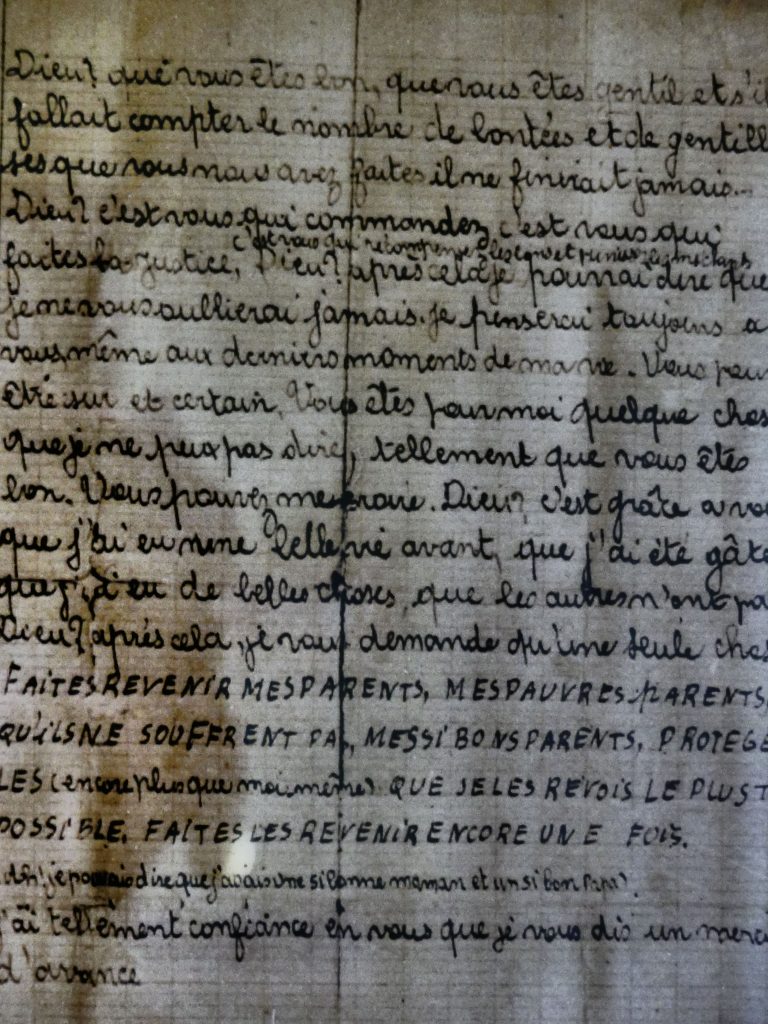 Dieu? que vous êtes bon, que vous êtes gentil et s'il
fallait compter le nombre de bontées et de gentill
ses que vous nous avez faites il ne finirait jamais...
Dieu? c'est vous qui commandez, c'est vous qui
c'est vous qui récompensez les bons et punissez les méchants
faites la justice, Dieu? après cela je pourrai dire que
je ne vous oublierai jamais. Je penserai toujours a
vous, même aux derniers moments de ma vie. Vous pouv
être sur et certain. Vous êtes pour moi quelque chos
que je ne peux pas dire, tellement que vous êtes
bon. Vous pouvez me croire. Dieu? c'est grâce a vou
que j'ai eu une belle vie avant, que j'ai été gâte
que j'ai eu de belles choses, que les autres n'ont pa
Dieu? après cela, je vous demande qu'une seule chos
FAITES REVENIR MES PARENTS, MES PAUVRES PARENTS,
QU'ILS NE SOUFFRENT PAS, MES SI BONS PARENTS, PROTEGE
LES (encore plus que moi-même) QUE JE LES REVOIS LE PLUS T
POSSIBLE, FAITES LES REVENIR ENCORE UNE FOIS.
Ah! je pouvais dire que j'avais une si bonne maman et un si bon Papa!
j'ai tellement confiance en vous que je vous dis un merci
d'avance